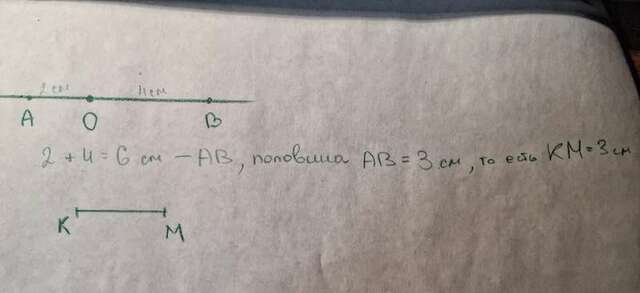 2 см 4 см
A O B
2 + 4 = 6 см – AB, половина AB = 3 см, то есть KM = 3 см
K M